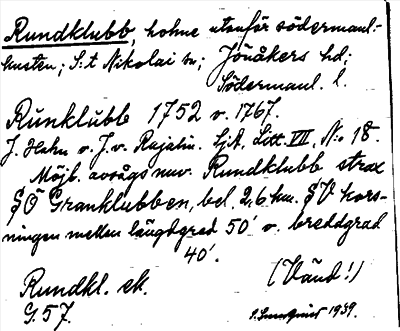 Rundklubb, holme utanför södermanl.-
kusten; S:t Nikolai sn; Jönåkers hd;
Södermanl. l.
Runklubb 1752 o. 1767.
J. Hahn o. J. v. Rajalin. Sjk. Litt. VII, N:o 18.
Möjl. avsågs nuv. Rundklubb strax
SÖ Granklubben, bel. 2,6 km. SV kors-
ningen mellan längdgrad 50' o. breddgrad
40'.
(Vänd!)
Rundkl. ek.
G. 57.
1939.